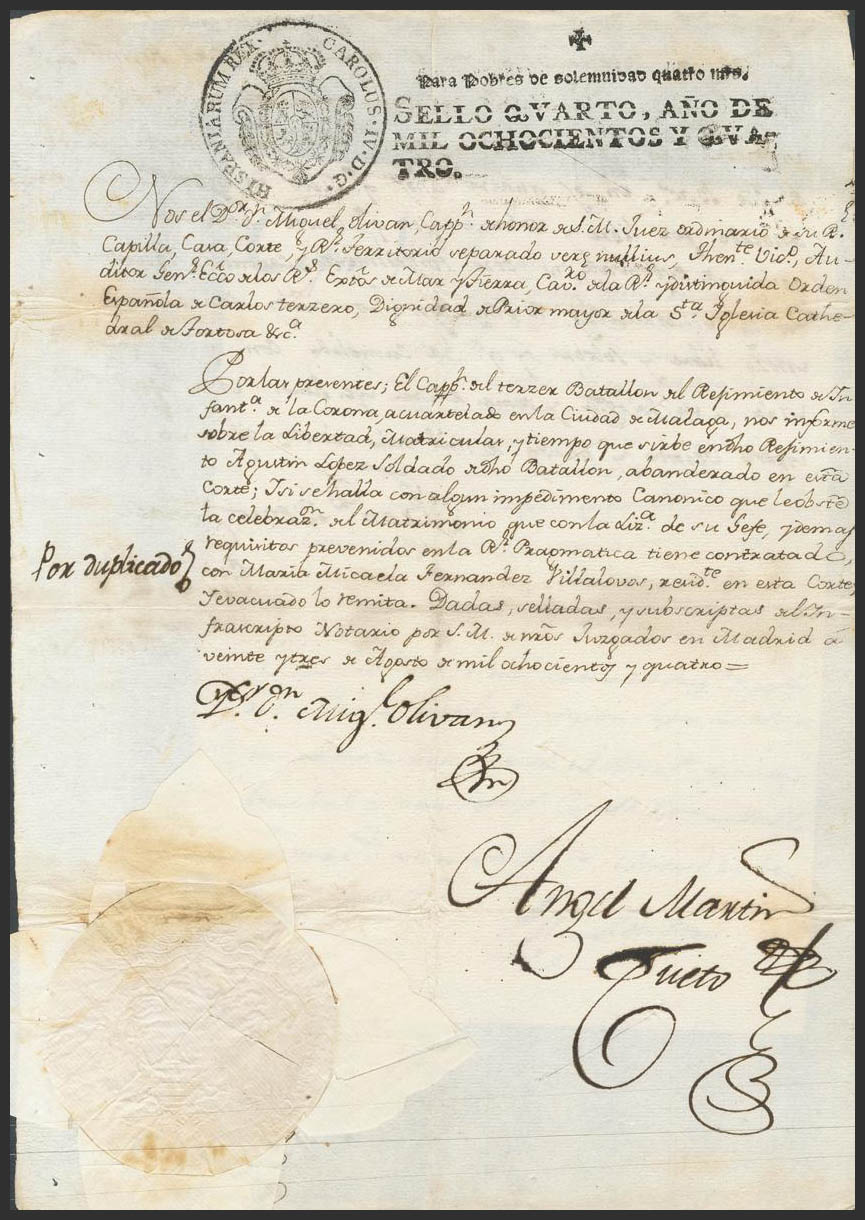 HISPANIARUM REX. CAROLUS·IV·D·G·
Para Pobres de solemnidad quatro mrs.
SELLO QVARTO, AÑO DE
MIL OCHOCIENTOS Y QVA-
TRO.
Nos el Dor. Dn. Miguel Olivan, Cappn. de honor de S. M. Juez ordinario de su Rl.
Capilla, Casa, Corte, y Rl. Territorio separado vere nullius, Thente. Vico., Au-
ditor Genl. Ecco. de los Rs. Extos. de Mar y Tierra, Cavro. de la Rl. y distinguida Orden
Española de Carlos terzero, Dignidad de Prior mayor de la Sta. Iglesia Cathe-
dral de Tortosa &ca.
Por las presentes; El Cappn. del terzer Batallon del Regimiento de In-
fanta. de la Corona acuartelado en la Ciudad de Malaga, nos informe
sobre la Libertad, Matricular, y tiempo que sirbe en dho Regimien-
to Agustin Lopez Soldado de dho Batallon, abanderado en esta
Corte; Y si se halla con algun impedimento Canonico que le obste
la celebrazon. del Matrimonio que con la Liza. de su Gefe, y demas
requisitos prevenidos en la Rl. Pragmatica tiene contratado,
con Maria Micaela Fernandez Villalovos, residte. en esta Corte,
Y evacuado lo remita. Dadas, selladas, y subscriptas del In-
frascripto Notario por S. M. de nros Juzgados en Madrid á
veinte y tres de Agosto de mil ochocientos y quatro=
Por duplicado
Dor. Dn. Migl. Olivan
Angel Martin
Cueto